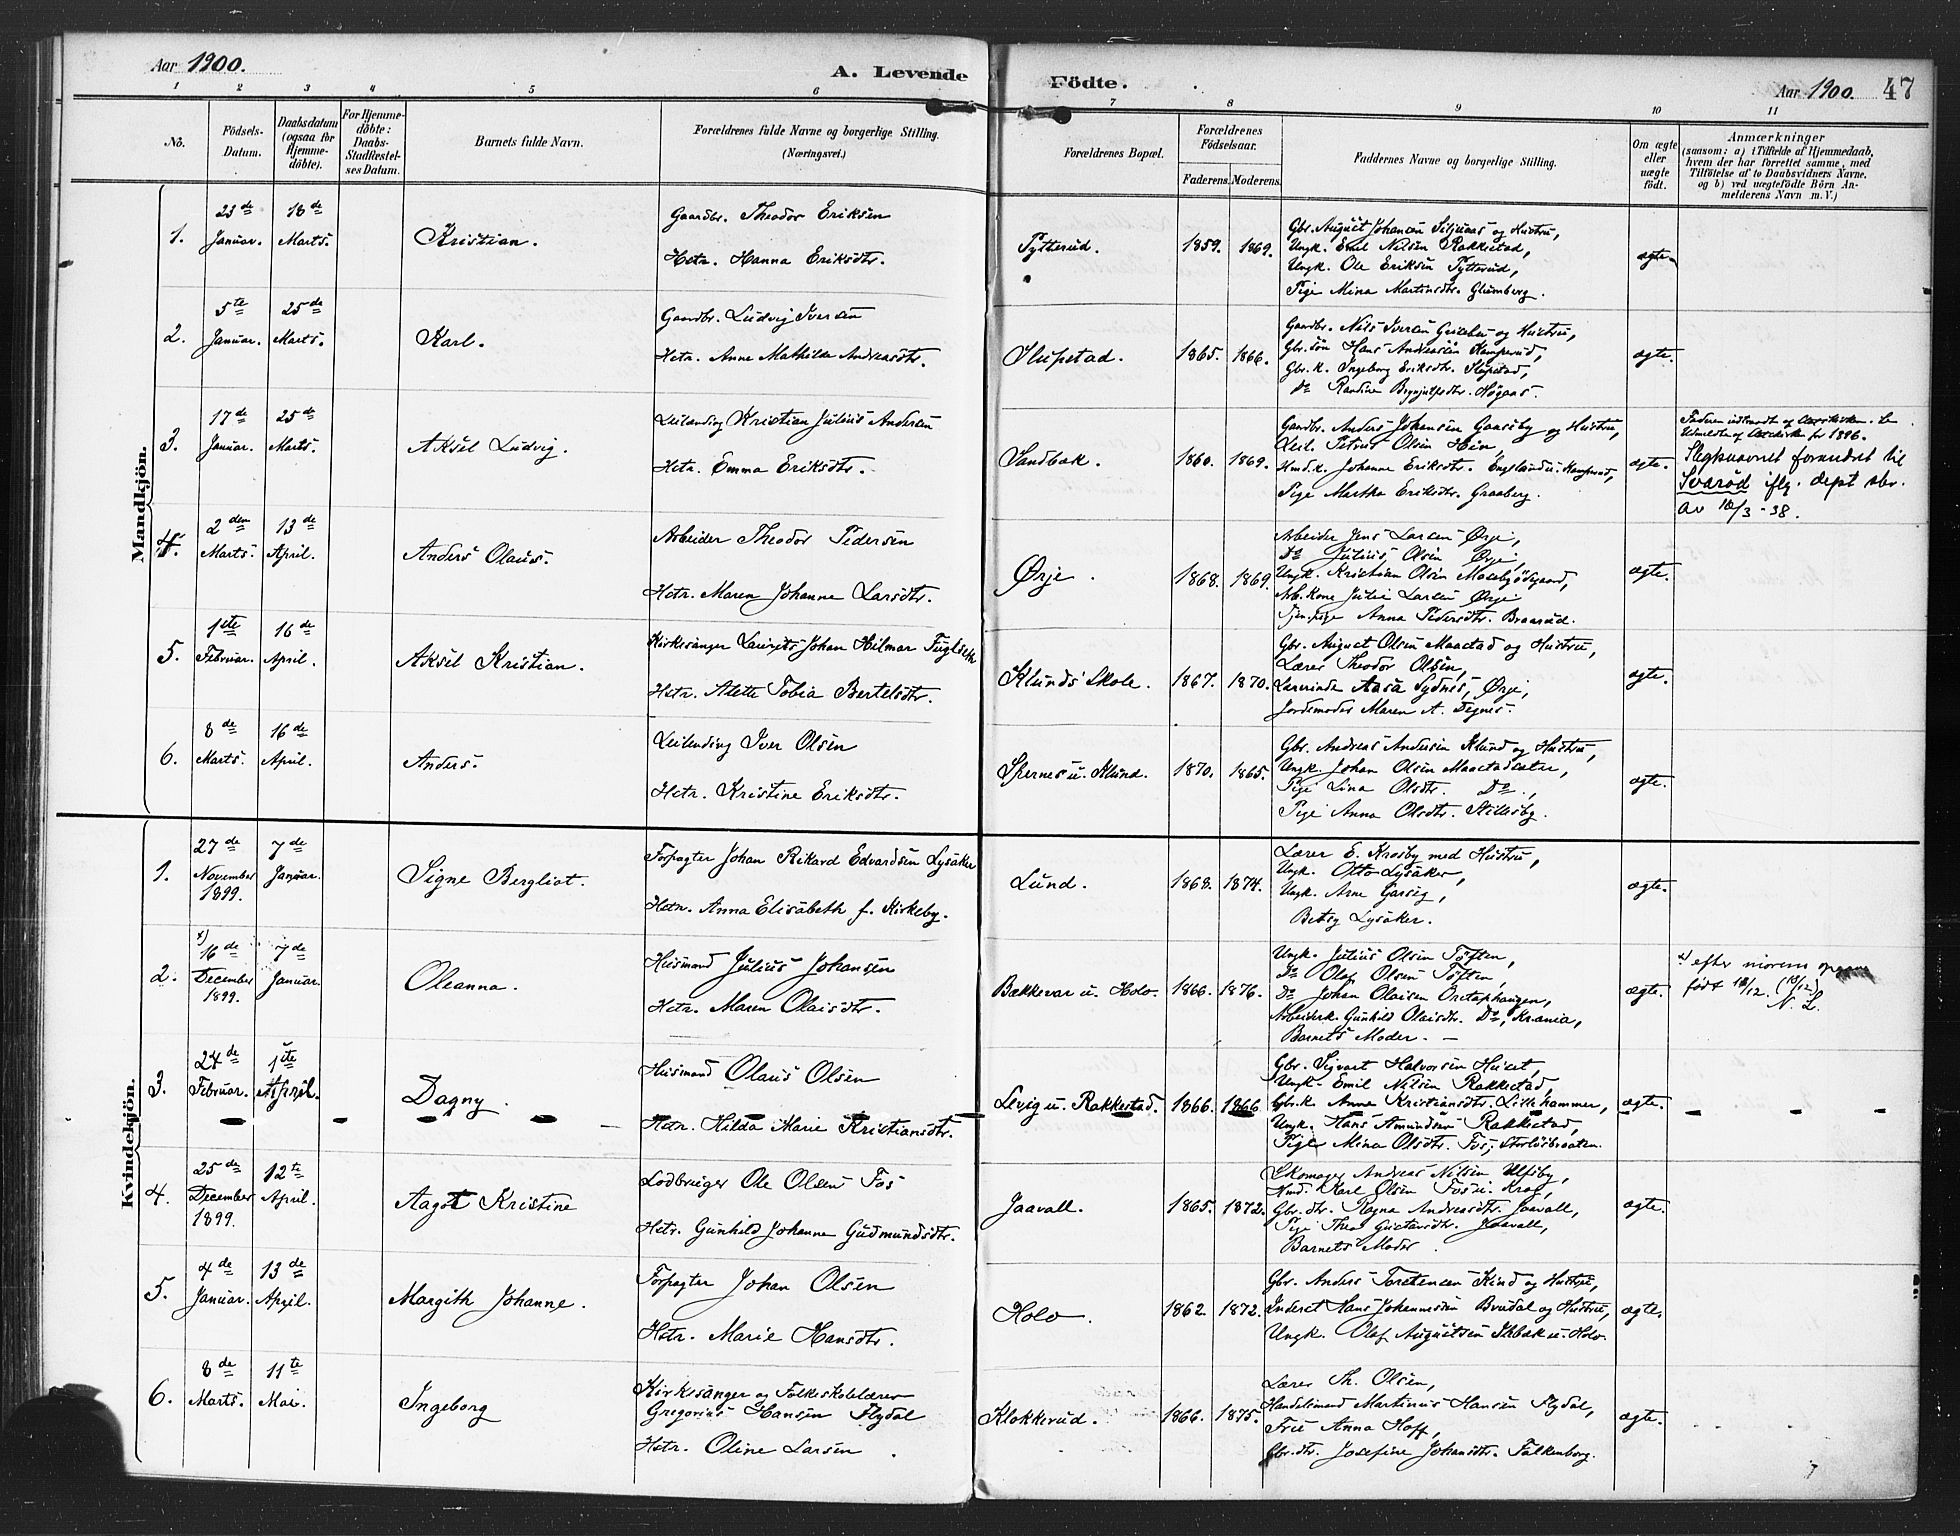 Aar 1900.
A. Levende Födte.
Aar 1900. 47
1 2 3 4 5 6 7 8 9 10 11
No.
Födsels-Datum.
Daabsdatum (ogsaa for Hjemme-döbte).
For Hjemme-döbte: Daabs-Stadfæstel-ses Datum.
Barnets fulde Navn.
Forældrenes fulde Navne og borgerlige Stilling.
(Næringsvei.)
Forældrenes Bopæl.
Forældrenes Födselsaar.
Faderens. Moderens.
Faddernes Navne og borgerlige Stilling.
Om ægte eller uægte födt.
Anmærkninger
(saasom: a) i Tilfælde af Hjemmedaab,
hvem der har forrettet samme, med
Tilföielse af to Daabsvidners Navne.
og b) ved uægtefödte Börn An-
melderens Navn m.V.)
Mandkjön.
1. 23de Januar. 18de Marts. Kristian.
Gaardbr. Theodor Eriksen
Hstr. Hanna Eriksdtr.
Tytterud. 1859. 1869.
Gbr. August Johansen og Hustru,
Ungk. Emil Nilsen Rakkestad,
Ungk. Ole Eriksen Tytterud,
Pige Mina Martinsdtr. Glumberg.
ægte.
2. 5te Januar. 25de Marts. Karl.
Gaardbr. Ludvig Iversen
Hstr. Anne Mathilde Andreasdtr.
Slupstad. 1865. 1866.
Gaardbr. Nils Iversen og Hustru,
Gbr. søn Hans Andreasen Kamperud,
Gbr. k. Ingeborg Eriksdtr. Slupstad,
Do Randine Høgaas.
ægte.
3. 17de Januar. 25de Marts. Aksel Ludvig.
Leilending Kristian Julius Andersen
Hstr. Emma Eriksdtr.
Sandbæk. 1860. 1869.
Gaardbr. Anders Johansen Gaasby og Hustru,
Leil. Petrus Olsen Hien,
Hmd.k. Johanne Eriksdtr. Engelund u. Kamperud,
Pige Martha Eriksdtr. Graaberg.
ægte.
Faderen udtraadt af
Udmeldt af for 1896.
Slegtsnavnet forandret til
Svarød iflg. dept skr.
av 18/3-38.
4. 2den Marts. 13de April. Anders Olaus.
Arbeider Theodor Pedersen
Hstr. Maren Johanne Larsdtr.
Ørje. 1868. 1869.
Arbeider Jens Larsen Ørje,
Do Julius Olsen Ørje,
Ungk. Kristian Olsen Mosebyødegaard,
Arb. kone Julie Larsen Ørje
Tjen.pige Anna Pedersdtr. Braarud.
ægte.
5. 1ste Februar. 16de April. Aksel Kristian.
Kirkesanger Laurits Johan Hilmar Fuglseth
Hstr. Alette Tobia Bertelsdtr.
Klunds Skole. 1867. 1870.
Gbr. August Olsen Maastad og Hustru,
Lærer Theodor Olsen,
Lærerinde Aasa Sydnes, Ørje,
Jordemoder Maren A. Degnes.
ægte.
6. 8de Marts. 16de April. Anders.
Leilending Iver Olsen
Hstr. Kristine Eriksdtr.
Spernes u. Klund. 1870. 1865.
Gbr. Andreas Andersen Klund og Hustru,
Ungk. Johan Olsen Maastadsæter,
Pige Lina Olsdtr. Do,
Pige Anna Olsdtr. Stillesby.
ægte.
Kvindekjön.
1. 27de November 1899. 7de Januar. Signe Bergliot.
Forpagter Johan Rikard Edvardsen Lysaker
Hstr. Anna Elisabeth f. Kirkeby.
Lund. 1868. 1874.
Lærer E. Krosby med Hustru,
Ungk. Otto Lysaker,
Ungk. Arne Garseg,
Betsy Lysaker.
ægte.
2. x) 16de December 1899. 7de Januar. Oleanna.
Husmand Julius Johansen
Hstr. Maren Olaisdtr.
Bækkevar u. Holø. 1866. 1876.
Ungk. Julius Olsen Toften,
Do Olaf Olsen Toften,
Do Johan Olaisen Oretaphaugen,
Arbeiderk. Gunhild Olaisdtr. Do, Krania,
Barnets Moder. —
ægte.
x) efter morens opgave
født 18/12. (18/12)
N. L.
3. 24de Februar. 1ste April. Dagny.
Husmand Olaus Olsen
Hstr. Hilda Marie Kristiansdtr.
Levig u. Rakkestad. 1866. 1866
Gbr. Sigvart Halvorsen Huset,
Ungk. Emil Nilsen Rakkestad,
Gbr.k. Anne Kristiansdtr. Lillehammer,
Ungk. Hans Amundsen Rakkestad,
Pige Mina Olsdtr. Fos, Storløsbraaten.
ægte.
4. 25de December 1899. 12te April. Aagot Kristine
Lodbruger Ole Olsen Fos
Hstr. Gunhild Johanne Gudmundsdtr.
Jaavall. 1865. 1872.
Skomager Andreas Nilsen Ulfsby,
Hmd. Karl Olsen Fosse. Krog,
Gbr. dtr. Ragna Andreasdtr. Jaavall,
Pige Thea Gustavsdtr. Jaavall,
Barnets Moder.
ægte.
5. 4de Januar. 13de April. Margith Johanne.
Forpagter Johan Olsen
Hstr. Marie Hansdtr.
Holø. 1862. 1872.
Gbr. Anders Torstensen Kind og Hustru,
Inderst Hans Johannesen Brudal og Hustru,
Ungk. Olaf Augustsen u. Holø.
ægte.
6. 8de Marts. 11te Mai. Ingeborg
Kirkesanger og Folkeskolelærer
Gregorius Hansen Flydal
Hstr. Oline Larsen.
Klokkerud. 1866. 1875.
Lærer Th. Olsen,
Handelsmand Martinus Hansen Flydal,
Frk Anna Hoff,
Gbr.dtr. Josefine Johansdtr. Falkenborg.
ægte.